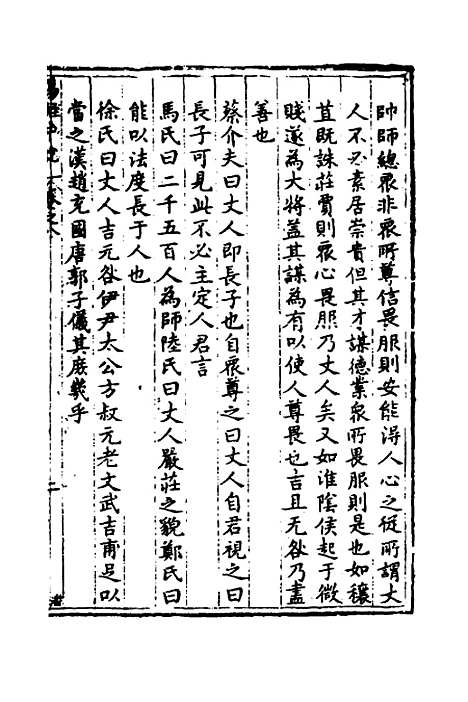 帥師緫衆非衆所尊信畏服則安能淂人心之從所謂丈
人不必素居崇貴但其才謀德業衆所畏服則是也如穰
苴既誅莊賈則衆心畏服乃丈人矣又如淮陰侯起于微
賤遂為大将盖其謀為有以使人尊畏也言且无咎乃盡
善也
蔡介夫曰丈人即長子也自衆尊之曰丈人自君視之曰
長子可見此不必主定人君言
馬氏曰二千五百人為師陸氏曰丈人嚴莊之貌鄭氏曰
能以法度長于人也
徐氏曰丈人吉元咎伊尹太公方叔元老文武吉甫足以
當之漢趙充國唐郭子儀其庶㡬乎
二